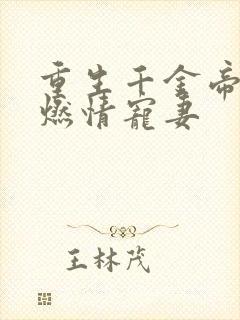 重生千金帝
燃情宠妻
王林茂